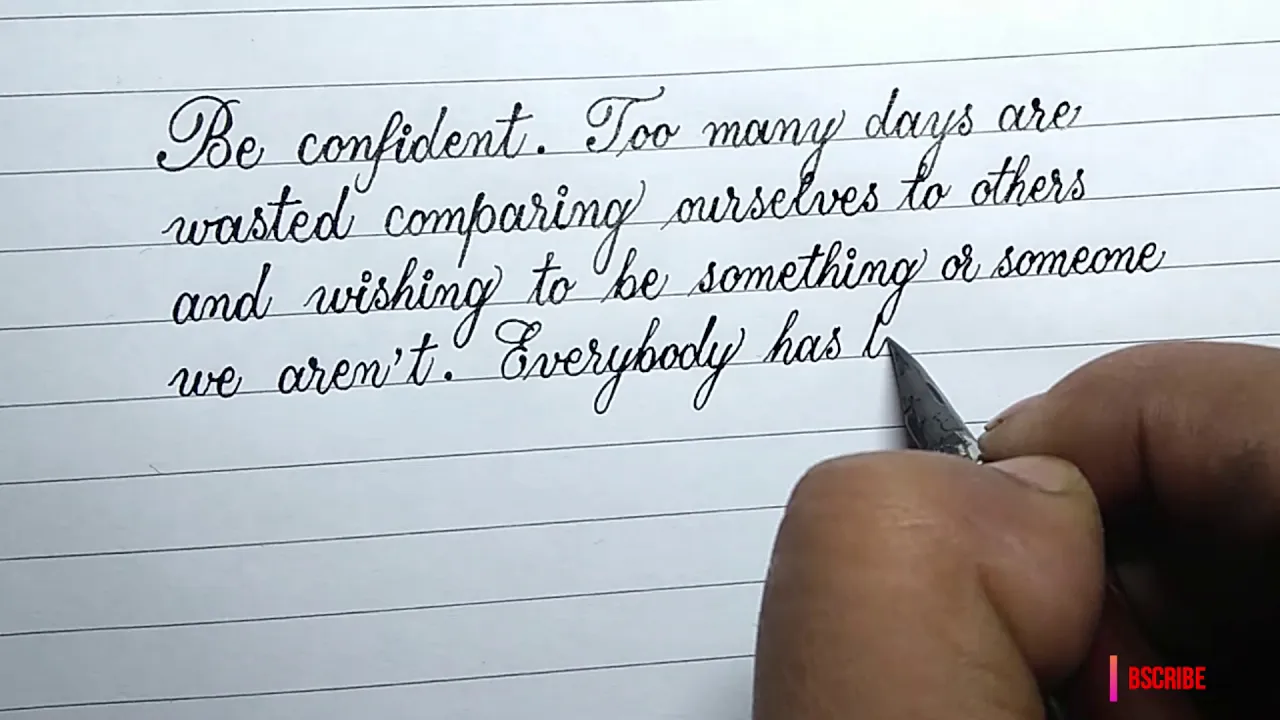 Be confident. Too many days are
wasted comparing ourselves to others
and wishing to be something or someone
we aren't. Everybody has
BSCRIBE